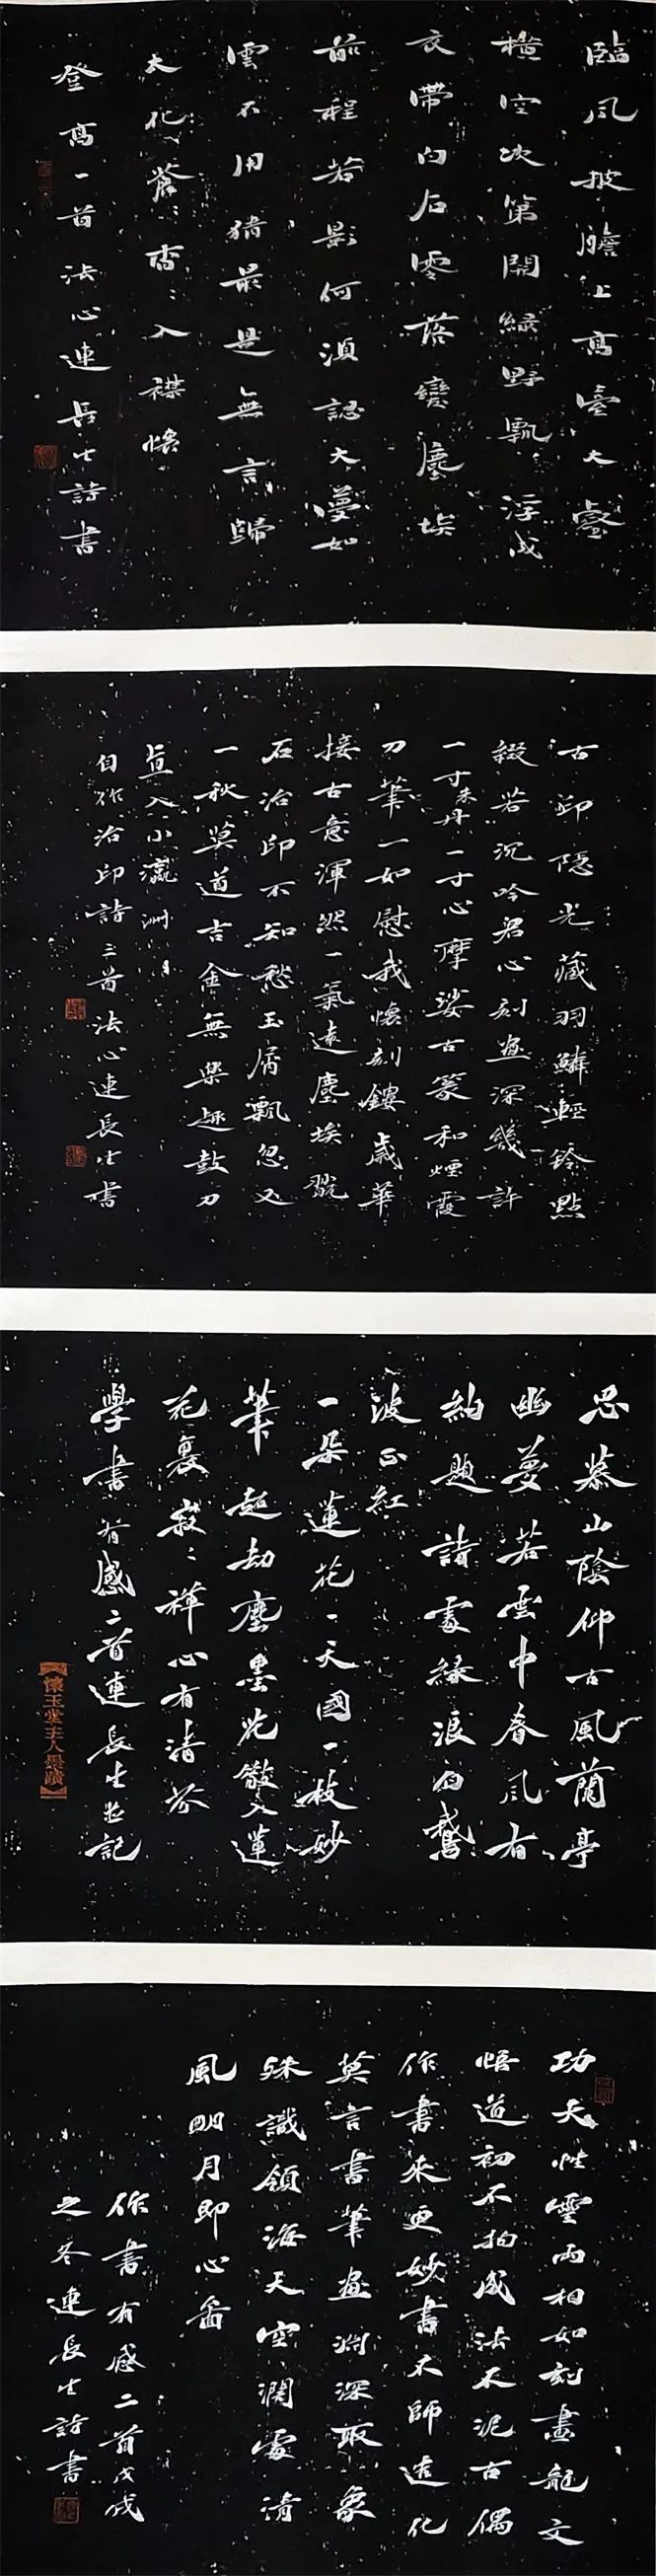 臨風披膽上高臺大壑
橫空次第開綠野飄浮成
衣帶白石零落變塵埃
前程若影何須認大夢如
雲不用猜最是無言歸
大化蒼〻杳〻入襟懷
登高一首法心連長生詩書
古印隱光藏羽鱗輕鈴點
綴若沉吟君心刻畫深幾許
一寸朱丹一寸心摩娑古篆和煙霞
刀筆一如慰我懷刻鏤歲華
接古意渾然一氣遠塵埃翫
石治印不知愁玉屑飄忽又
一秋莫道吉金無樂趣鼓刀
直入小瀛洲
自作治印詩三首法心連長生書
思慕山陰仰古風蘭亭
幽夢若雲中春風有
約題詩處綠浪白鵞
波正紅
一朵蓮花一天國一枝妙
筆起劫塵墨光散入蓮
花裏寂〻禪心有清芬
學書有感二首連長生並記
懷玉堂主人墨蹟
功夫性靈兩相如刻畫龍文
悟道初不拘成法不泥古偶
作書來更妙書不師造化
莫言書筆畫淵深取象
殊識領海天空濶處清
風明月即心畫
作書有感二首戊戌
之冬連長生詩書